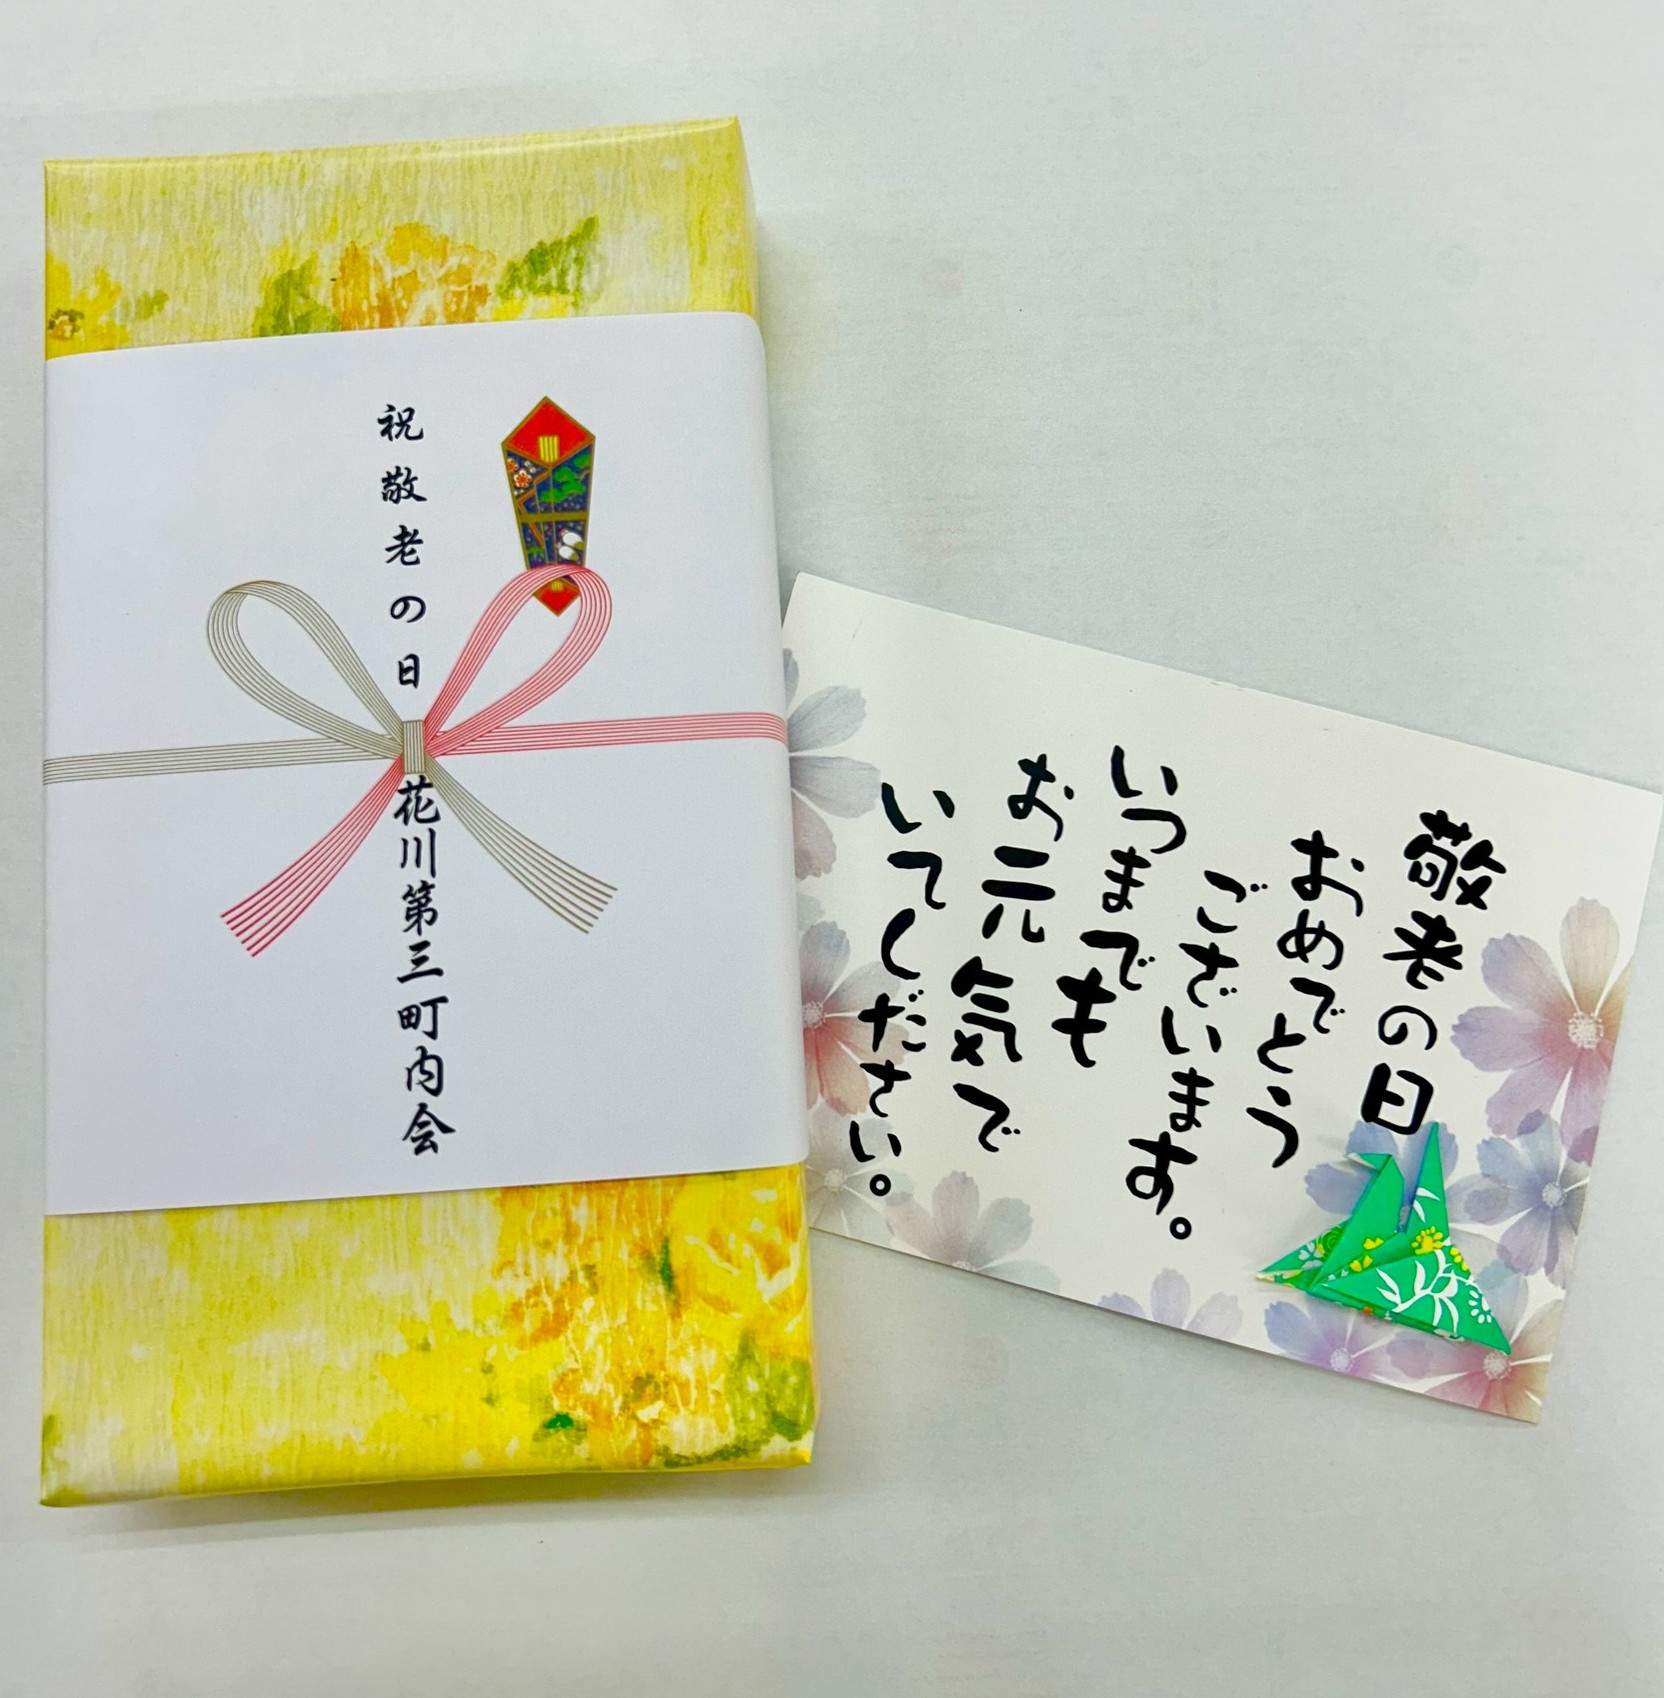 祝敬老の日
花川第三町内会
敬老の日
おめでとう
ございます。
いつまでも
お元気で
いてください。